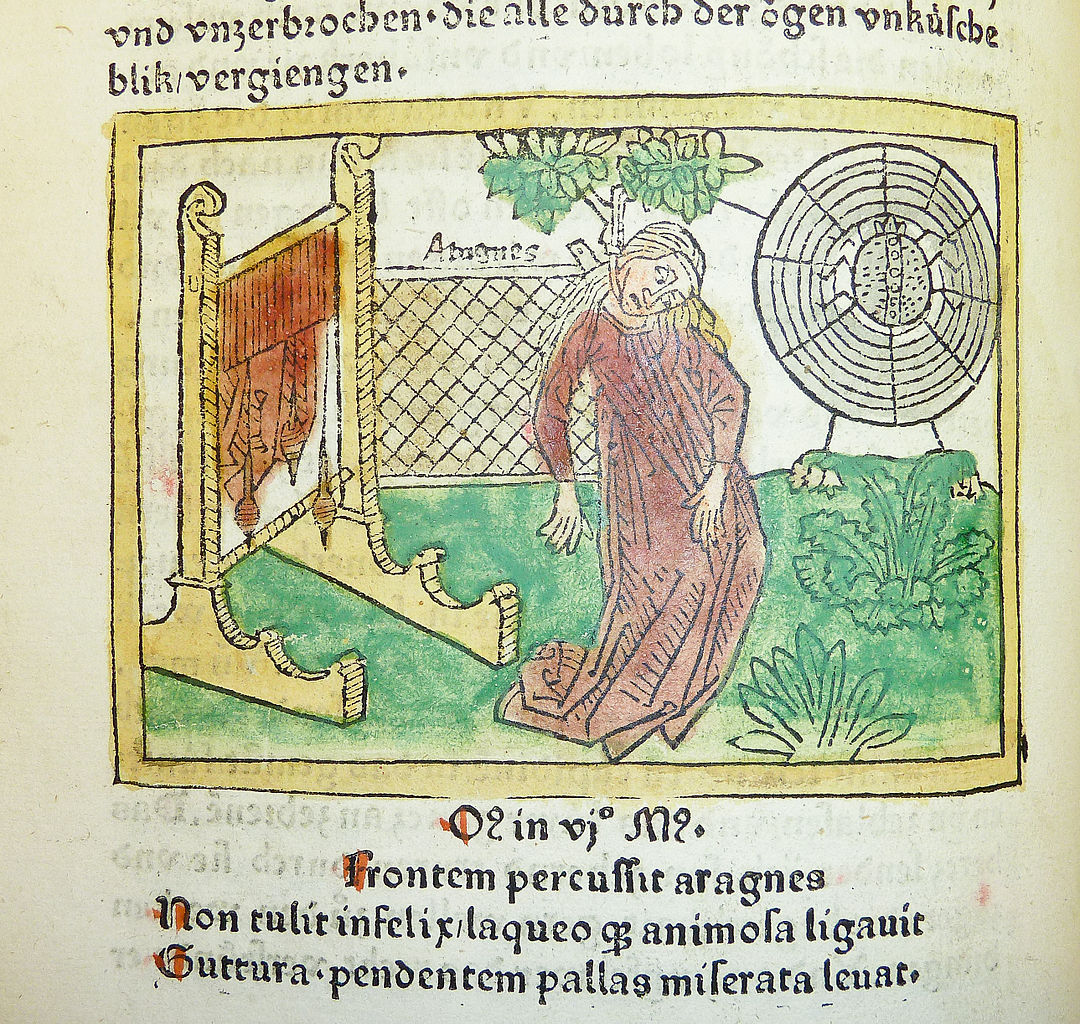 vnd vnzerbrochen·die alle durch der ögen vnküsche
blik/vergiengen.
Aragnes
Oꝛ in vjº Mꝛ.
Frontem percussit aragnes
Non tulit infelix/laqueo qꝫ animosa ligauit
Guttura·pendentem pallas miserata leuat.